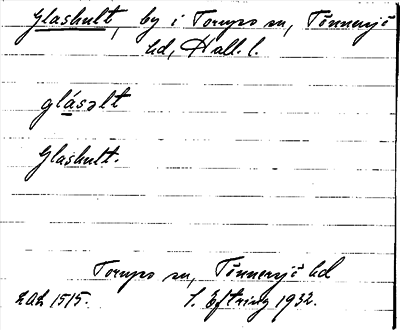 Glashult, by i Torups sn, Tönnersjö
hd, Hall. l.
glásəlt
Glashult.
Torups sn, Tönnersjö hd
Z.O.L. 1515. S. Eftring 1932.